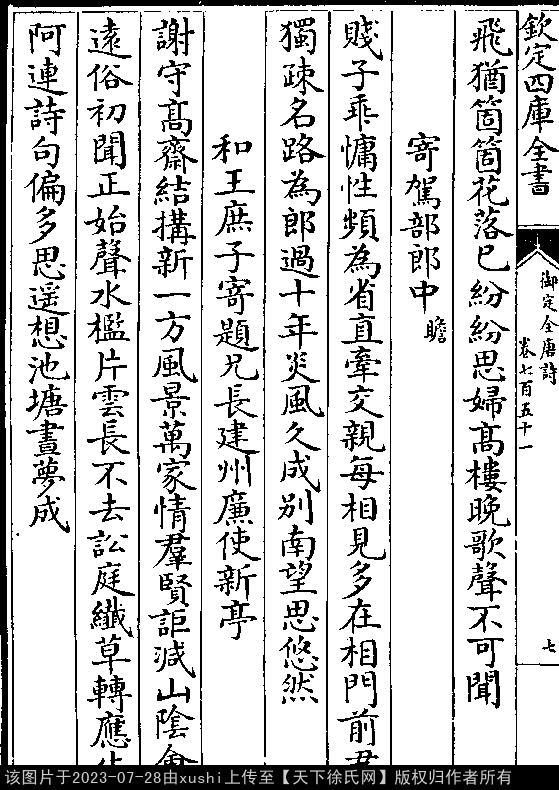 欽定四庫全書
御定全唐詩
卷七百五十一
七
飛猶箇箇花落已紛紛思婦髙樓晚歌聲不可聞
寄駕部郎中瞻
賤子乖慵性頻為省直牽交親每相見多在相門前君
獨疎名路為郎過十年炎風久成别南望思悠然
和王庶子寄題兄長建州廉使新亭
謝守髙齋結搆新一方風景萬家情羣賢詎減山隂會
遠俗初聞正始聲水檻片雲長不去訟庭纎草轉應生
阿連詩句偏多思遥想池塘晝夢成
该图片于2023-07-28由xushi上传至【天下徐氏网】版权归作者所有